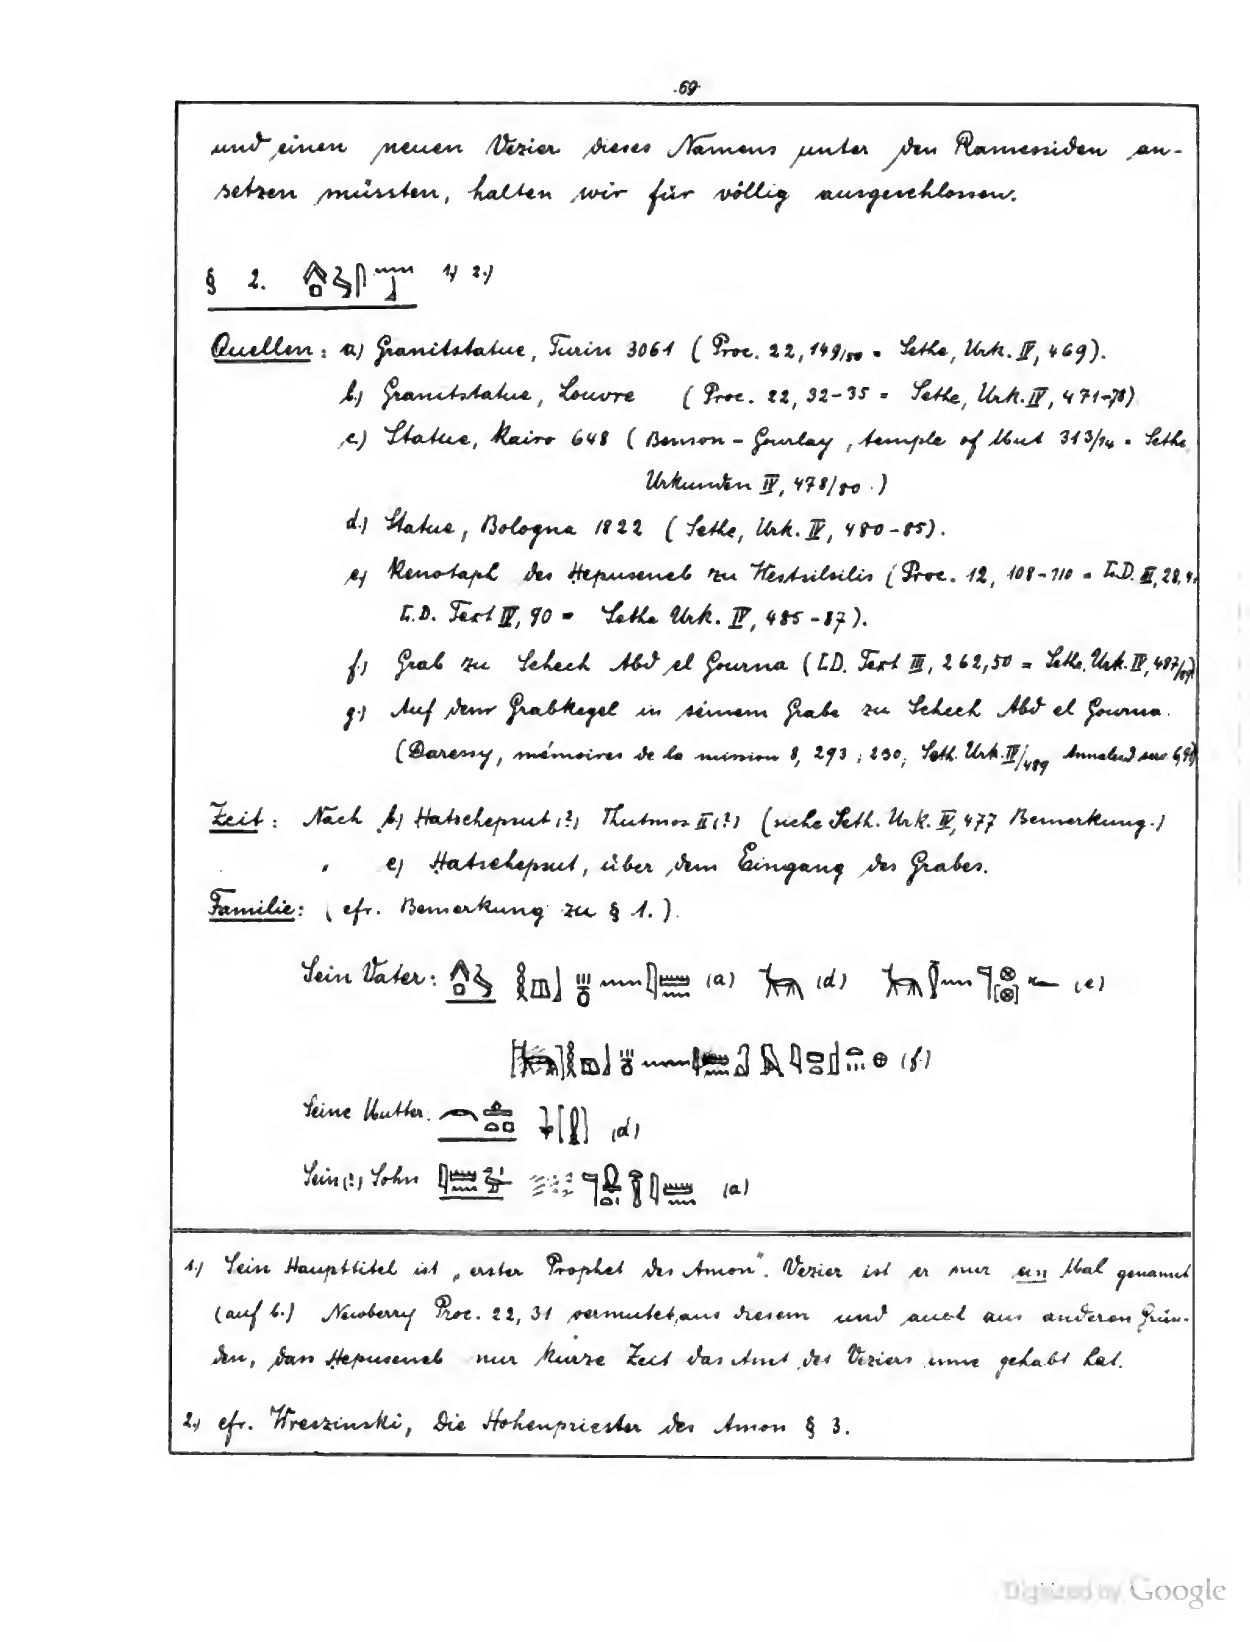 69
und einen neuen Vezier dieses Namens unter den Ramessiden an-
setzen müssten, halten wir für völlig ausgeschlossen.
§ 2. 1) 2.)
Quellen: a) Granitstatue, Turin 3061 (Proc. 22, 149/50 = Sethe, Urk. IV, 469).
b.) Granitstatue, Louvre (Proc. 22, 32-35 = Sethe, Urk. IV, 471-78)
c.) Statue, Kairo 648 (Benson-Gourlay, temple of Mut 313/14 = Sethe
Urkunden IV, 478/80.)
d.) Statue, Bologna 1822 (Sethe, Urk. IV, 480-85).
e) Kenotaph des Hepuseneb zu Westsilsilis (Proc. 12, 108-110 = L.D. III, 28,
L.D. Text IV, 90 = Sethe Urk. IV, 485-87).
f.) Grab zu Schech Abd el Gourna (L.D. Text III, 262, 50 = Sethe, Urk. IV, 487/
g.) Auf dem Grabkegel in seinem Grabe zu Schech Abd el Gourna.
(Daressy, mémoires de la mission 8, 293, 230; Seth. Urk. IV/489
Zeit: Nach b) Hatschepsut (?) Thutmos II (?) (siehe Seth. Urk. IV, 477 Bemerkung.)
" e) Hatschepsut, über dem Eingang des Grabes.
Familie: (cfr. Bemerkung zu § 1.).
Sein Vater: (a) (d) (e)
(f.)
Seine Mutter. (d)
Sein (?) Sohn (a)
1.) Sein Haupttitel ist „erster Prophet des Amon". Vezier ist er nur ein Mal genannt
(auf b.) Newberry Proc. 22, 31 vermutet, aus diesem und auch aus anderen Grün-
den, dass Hepuseneb nur kurze Zeit das Amt des Veziers inne gehabt hat.
2.) cfr. Wreszinski, Die Hohenpriester des Amon § 3.
Digitized by Google